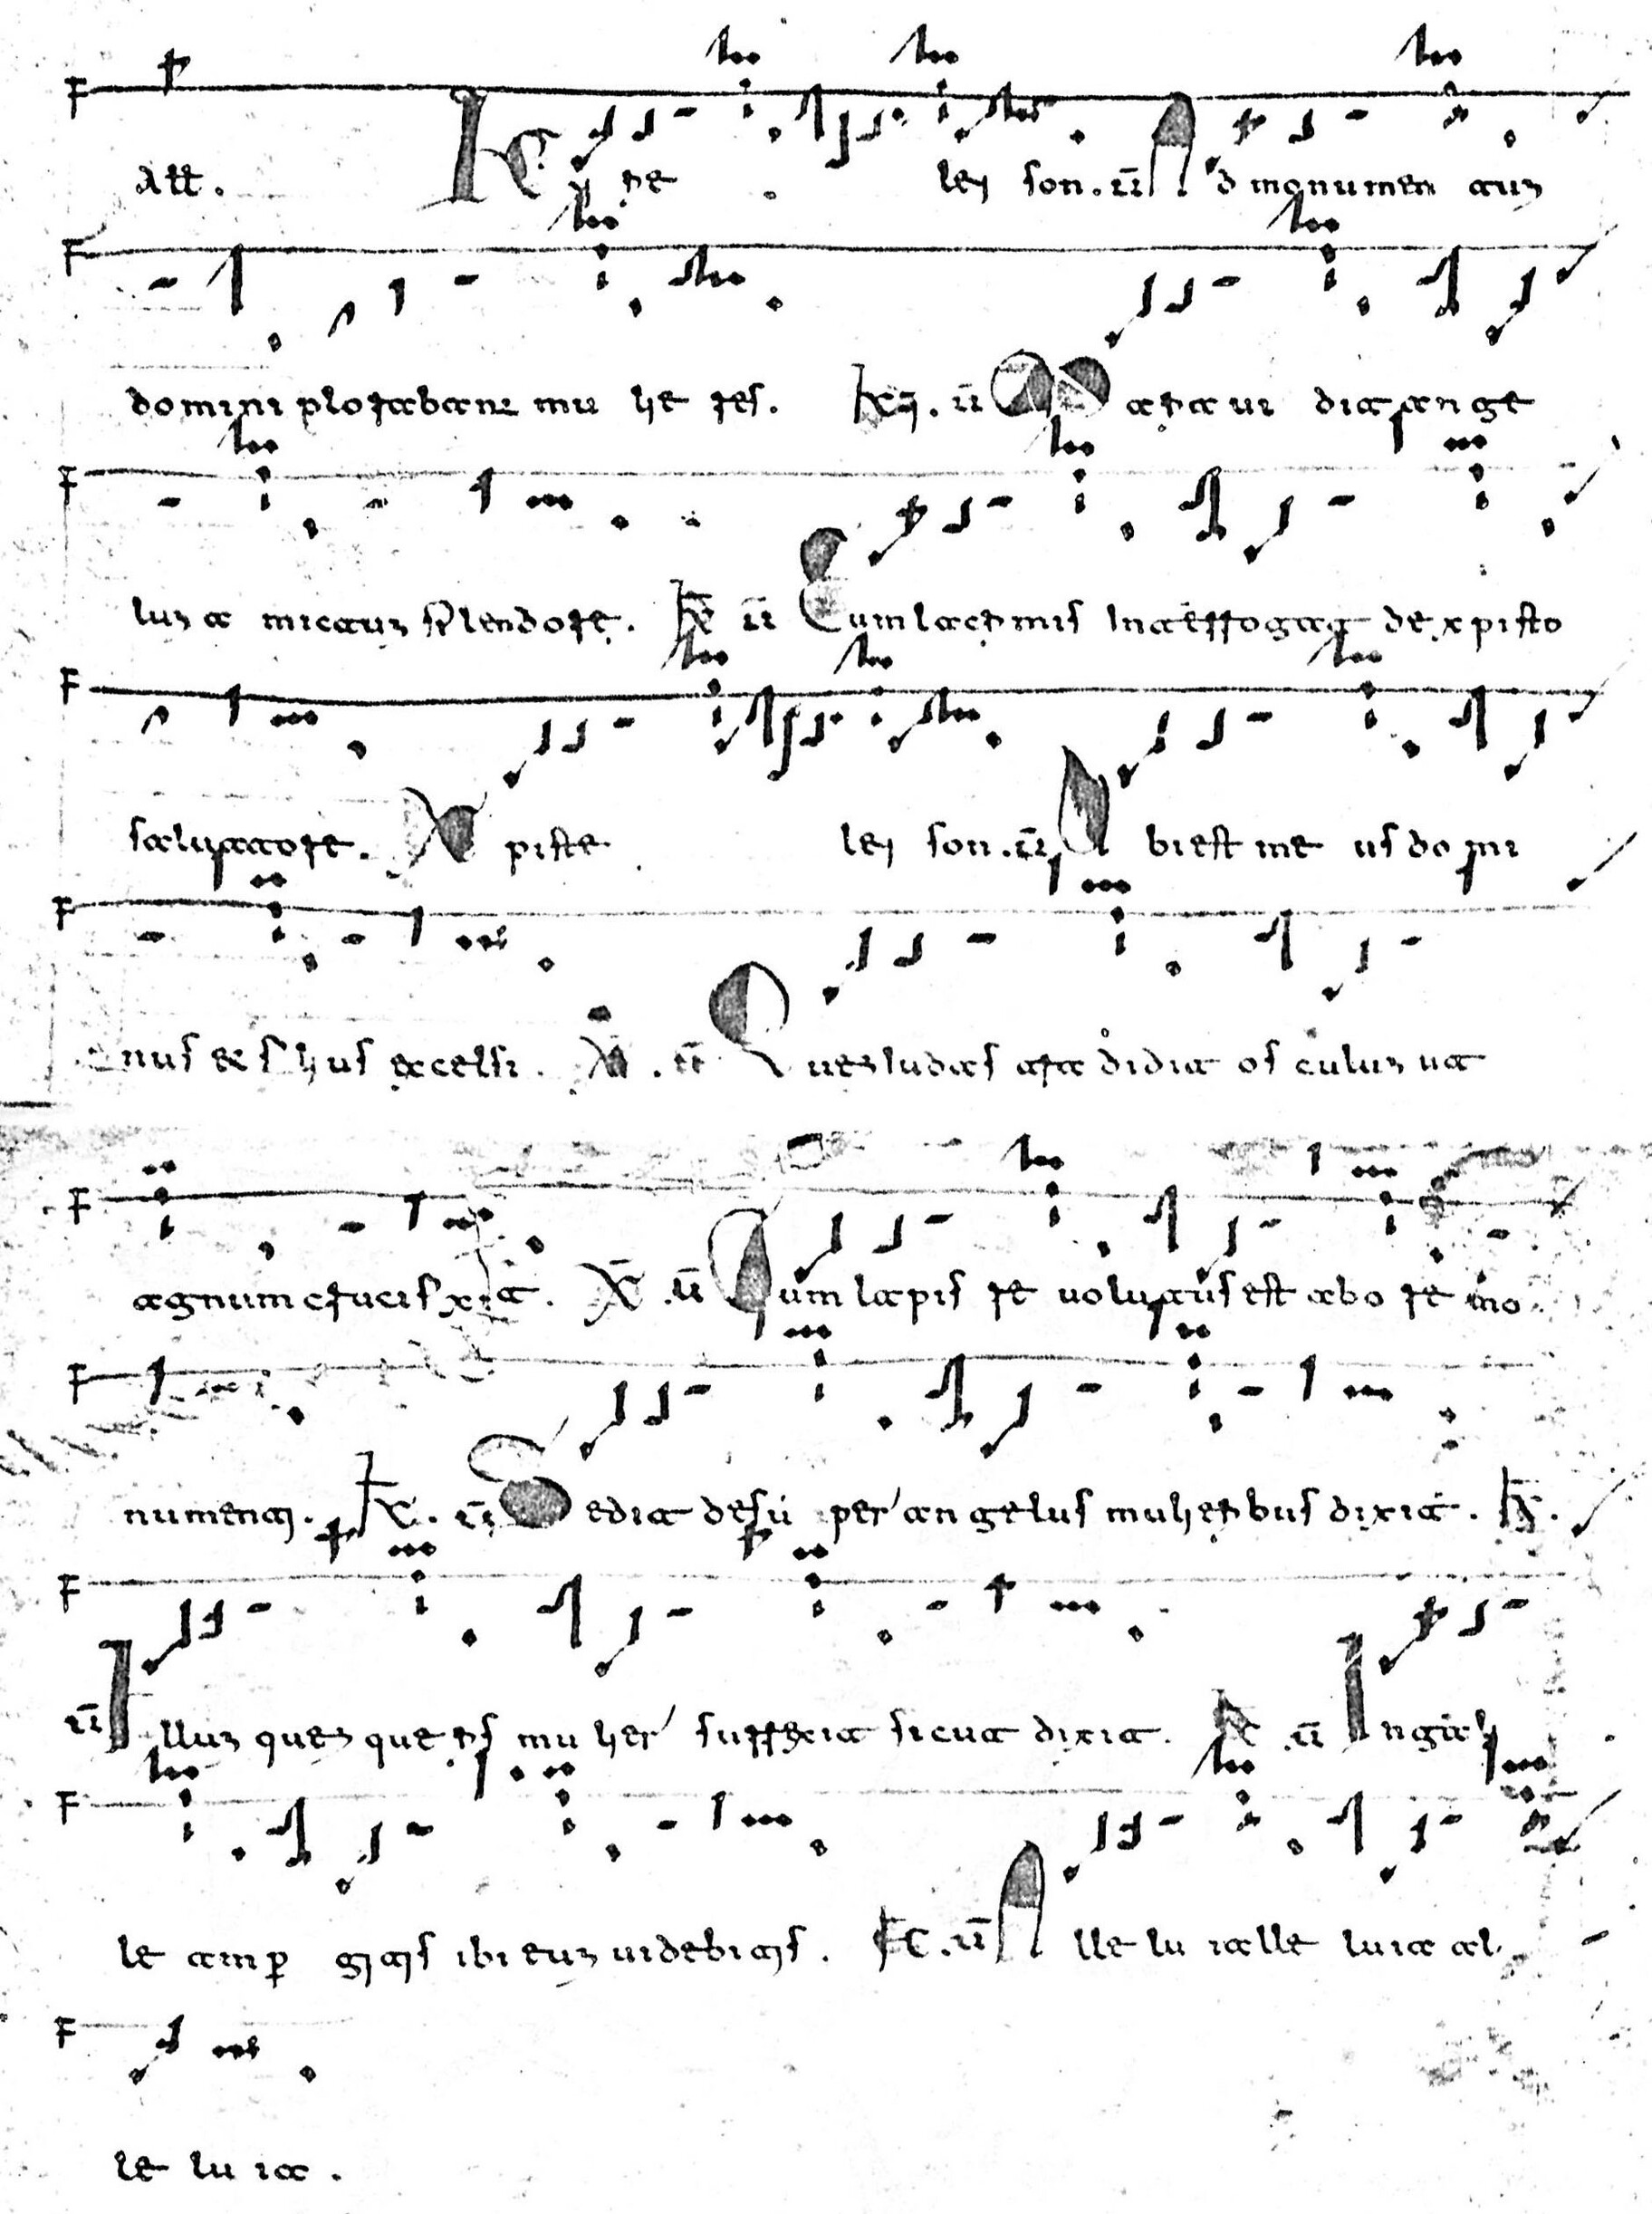 All. Kỹ rie leỹ son. ii. Ad monumen tum
domini plorabant mu lie res. Kỹ. ii Maratui dit ange
lum a mictum splendore. K ii Cum lacrimis Interrogat de xpisto
salvatore. Xpiste leỹ son. ii. Ubi est me us domi
nus et filius excelsi. X. ii Quem Iudas tradidit osculum ut
agnum crucis xit. X. ii Cum lapis re volutus est ab ore mo
numenti. X. ii Sedit desuper angelus mulieribus dixit. K.
ii Illum quem queris mulier surrexit sicut dixit. K ii In gali
le am per gitis ibi eum videbitis. K. ii Alle lu ialle luia al
le lu ia.